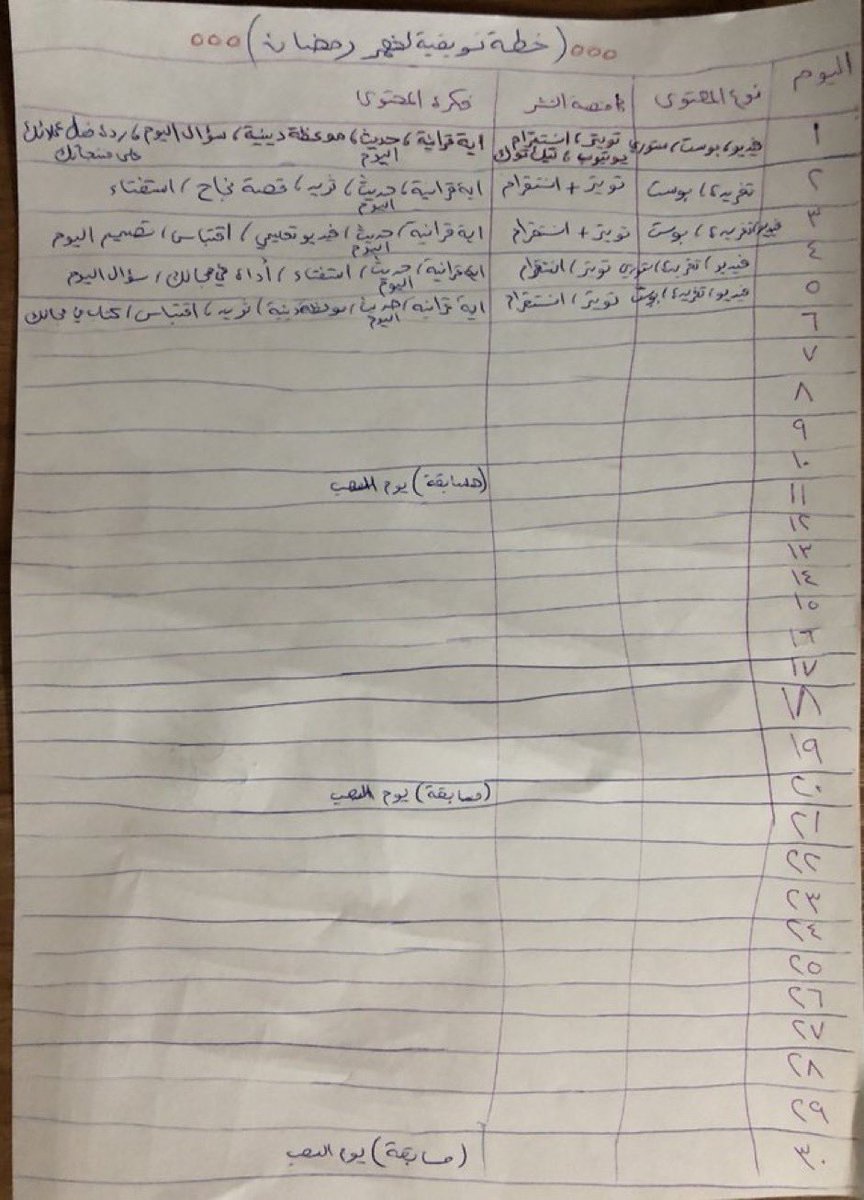 ooo (خطة تسويقية لشهر رمضان) ooo
اليوم نوع المحتوى منصة النشر فكرة المحتوى
١ فيديو، بوست، ستوري تويتر، انستقرام يوتيوب، تيك توك اية قرانية، حديث اليوم، موعظة دينية، سؤال اليوم، ردة فعل عملائك على منتجاتك
٢ تغريدة، بوست تويتر + انستقرام اية قرانية، حديث اليوم، تريد، قصة نجاح / استفتاء
٣ فيديو، تغريدة، بوست تويتر + انستقرام اية قرانية / حديث اليوم / فيديو تعليمي / اقتباس / تصميم اليوم
٤ فيديو / تغريدة / ستوري تويتر / انستقرام اية قرانية / حديث اليوم / استفتاء / أداة في مجالك / سؤال اليوم
٥ فيديو / تغريدة / بوست تويتر / انستقرام اية قرانية / حديث اليوم / موعظة دينية / تريد، اقتباس / في مجالك
٦
٧
٨
٩
١٠ (مسابقة) يوم
١١
١٢
١٣
١٤
١٥
١٦
١٧
١٨
١٩
٢٠ (مسابقة) يوم
٢١
٢٢
٢٣
٢٤
٢٥
٢٦
٢٧
٢٨
٢٩
٣٠ (مسابقة) يوم